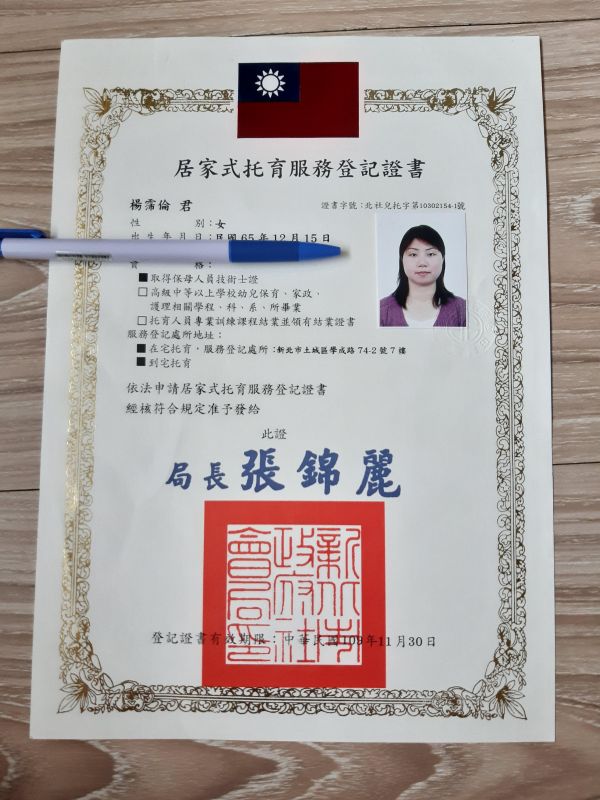 居家式托育服務登記證書
楊霈倫 君
證書字號：北社兒托字第10302154-1號
性 別：女
出生年月日：民國65年12月15日
資 格：
■取得保母人員技術士證
□高級中等以上學校幼兒保育、家政、
護理相關學程、科、系、所畢業
□托育人員專業訓練課程結業並領有結業證書
服務登記處所地址：
■在宅托育，服務登記處所：新北市土城區學成路74-2號7樓
■到宅托育
依法申請居家式托育服務登記證書
經核符合規定准予發給
此證
局長 張錦麗
新北市政府社會局印
登記證書有效期限：中華民國109年11月30日